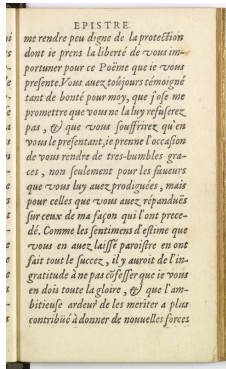 EPISTRE
me rendre peu digne de la protection
dont ie prens la liberté de vous im-
portuner pour ce Poëme que ie vous
presente. Vous auez toûjours témoigné
tant de bonté pour moy, que j'ose me
promettre que vous ne la luy refuserez
pas, & que vous souffrirez qu'en
vous le presentant, ie prenne l'occasion
de vous rendre de tres-humbles gra-
ces, non seulement pour les faueurs
que vous luy auez prodiguées, mais
pour celles que vous auez répanduës
sur ceux de ma façon qui l'ont prece-
dé. Comme les sentimens d'estime que
vous en auez laissé paroistre en ont
fait tout le succez, il y auroit de l'in-
gratitude à ne pas cõfesser que ie vous
en dois toute la gloire, & que l'am-
bitieuse ardeur de les meriter a plus
contribüé à donner de nouuelles forces